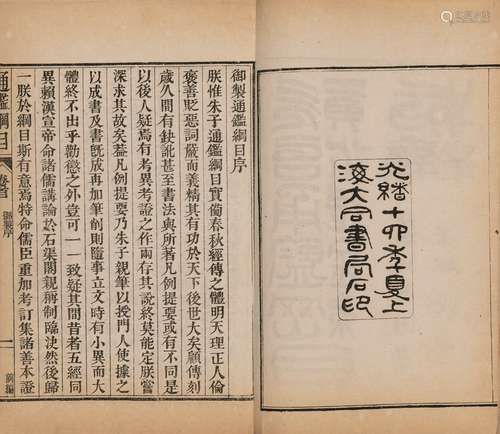 光緒十四年夏上
海大同書局石印
御製通鑑綱目序
朕惟朱子通鑑綱目實備春秋經傳之體明天理正人倫
褒善貶惡詞嚴而義精其有功於天下後世大矣顧傳刻
歲久間有缺訛甚至書法與所著凡例提要或有不同是
以後人疑焉有考異考證之作兩存其說終莫能定朕嘗
深求其故矣蓋凡例提要乃朱子親筆以授門人使據之
以成書及書既成再加筆削則隨事立文時有小異而大
體終不出乎勸懲之外豈可一一致疑其間昔者五經同
異賴漢宣帝命諸儒講論於石渠閣親稱制臨決然後歸
一朕於綱目斯有意焉特命儒臣重加考訂集諸善本證
通鑑綱目 卷首 御製序 前編